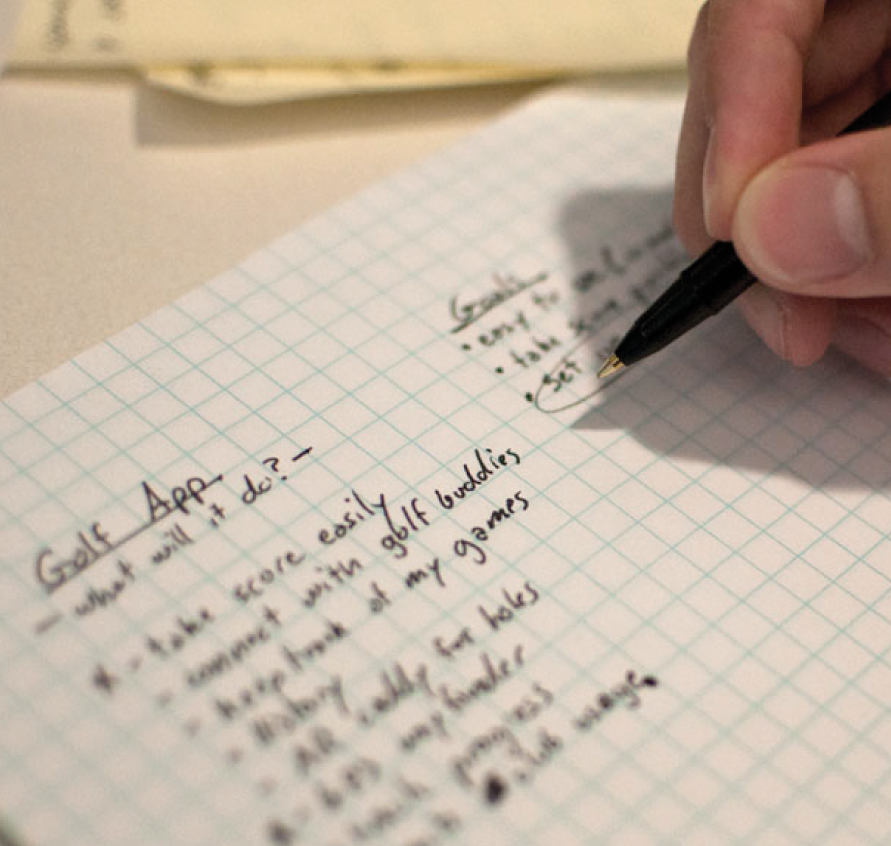 Golf App
- what will it do? -
* - take score easily
- connect with golf buddies
- keep track of my games
- History
- AR caddy for holes
- GPS wayfinder
progress
club usage
Goals
• easy to
• take score
• set up